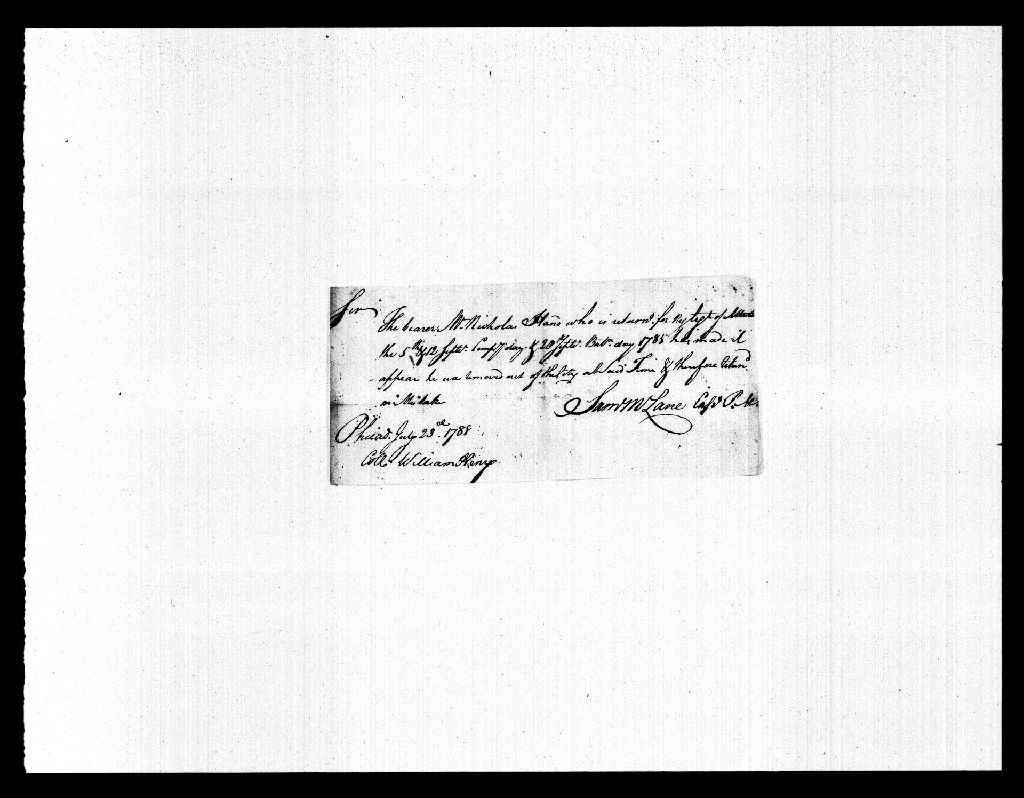 Sir
The bearer Mr. Nicholas Hans who is return'd for Neglect of
the 5th & 12 Septr. Compy day & 20 Septr. Batt. day 1785 has made it
appear he was moved out of the City at said Time & therefore return'd
in Mistake
Saml McLane Capt
Philad. July 23rd. 1788
Coll. William Henry